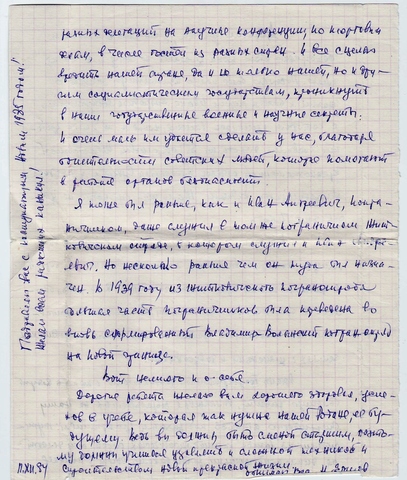 разных делегаций на научные конференции, по торговым
делам, в числе гостей из разных стран. И все с целью
вредить нашей стране, да и не только нашей, но и дру-
гим социалистическим государствам, проникнуть
в наши государственные военные и научные секреты.
И очень мало им удается сделать у нас, благодаря
бдительности советских людей, которые помогают
в работе органов безопасности.
Я тоже был раньше, как и Иван Андреевич, погра-
ничником, даже служил в том же пограничном
отряде, в котором служил и Иван
Но несколько раньше чем он туда был назна-
чен. В 1939 году из погранотряда
большая часть пограничников была переведена во
вновь сформированный Владимир Волынский погранотряд
на новой границе.
Вот немного и о себе.
Дорогие ребята желаю вам хорошего здоровья, успе-
хов в учебе, которая так нужна нашей Родине, её бу-
дущему. Ведь вы должны быть сменой старшим, поэто-
му должны учиться
строительством новой прекрасной жизни.
11.XII.84
Поздравляю вас с наступающим новым 1985 годом!
Желаю вам радостных каникул!